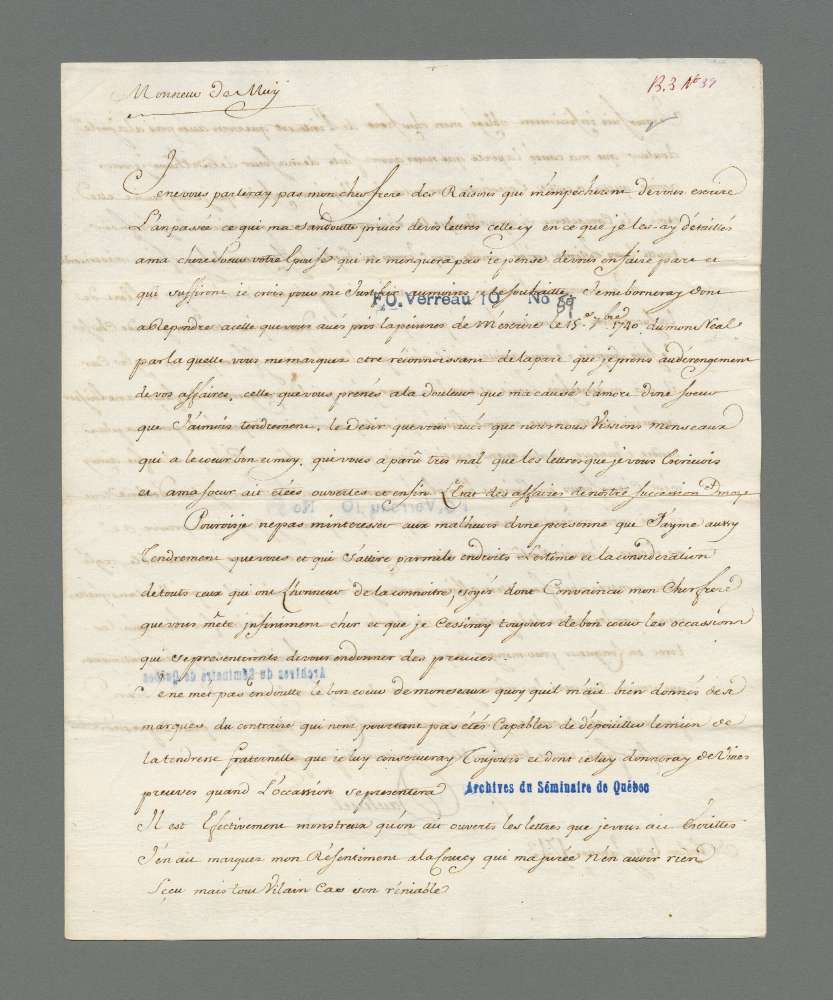 Monsieur De Muy
B.3 N° 39
Je ne vous parleray pas mon cher frere des Raisons qui m'empecherent de vous escrire
L'an passée ce qui ma sandoutte privés de vos lettres celle cy en ce que je les ay détaillés
a ma chere soeur votre Epouse qui ne manquera pas je pense de vous en faire part et
qui suffiront ie crois pour me Justifier aumoins ie le souhaitte. Je me borneray dont
a Repondre a celle que vous avés pris la peinnes de M'escrire le 15e 7bre 1740 du mon Real
F.O. Verreau 10 No
par la quelle vous me marquez etre réconnoissant de la part que je prens au dérengement
de vos affaires, celle que vous prenés a la douleur que ma causé la more dune soeur
que J'aimois tendrement, le desir que vous avés que nous nous Vissions monseaux
qui a le coeur bon et moy, que vous a parû tres mal que les lettres que je vous Ecrivois
et a ma soeur ait étées ouvertes et enfin L'Etat des affaires de notre succession
Pouroije ne pas m'interesser aux malheurs dune personne que J'ayme aussy
Tendrement que vous et qui s'attire parmile endroits L'estime et la considération
de touts ceux qui ont L'honneur de la connoitre, soyés dont Convaincu mon Cher frere
que vous m'ete infiniment cher et que je saisiray toujours de bon coeur les occassions
qui se presenteronts de vous en donner des preuves.
Je ne met pas en doutte le bon coeur de monseaux quoy quil m'ait bien donnés des
marques du contraire qui nont pourtant pas étés Capables de dépouiller le mien de
la tendresse fraternelle que ie luy conserveray Toujours et dont ie luy donneray de Vives
preuves quand L'occassion se presentera
Archives du Séminaire de Québec
Il est Efectivement monstreux qu'on ait ouverts les lettres que je vous ait Ecrittes
J'en ait marquez mon Résentiment a la Courcy qui ma jurée n'en avoir rien
sçeu mais tout Vilain Cas son réniable